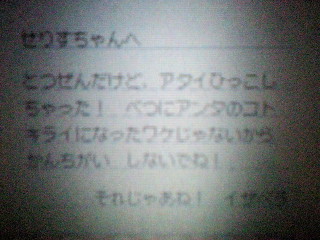 せりすちゃんへ
とつぜんだけど、アタイひっこし
ちゃった！　べつにアンタのコト
キライになったワケじゃないから
かんちがい　しないでね！
それじゃあね！　イザベラ